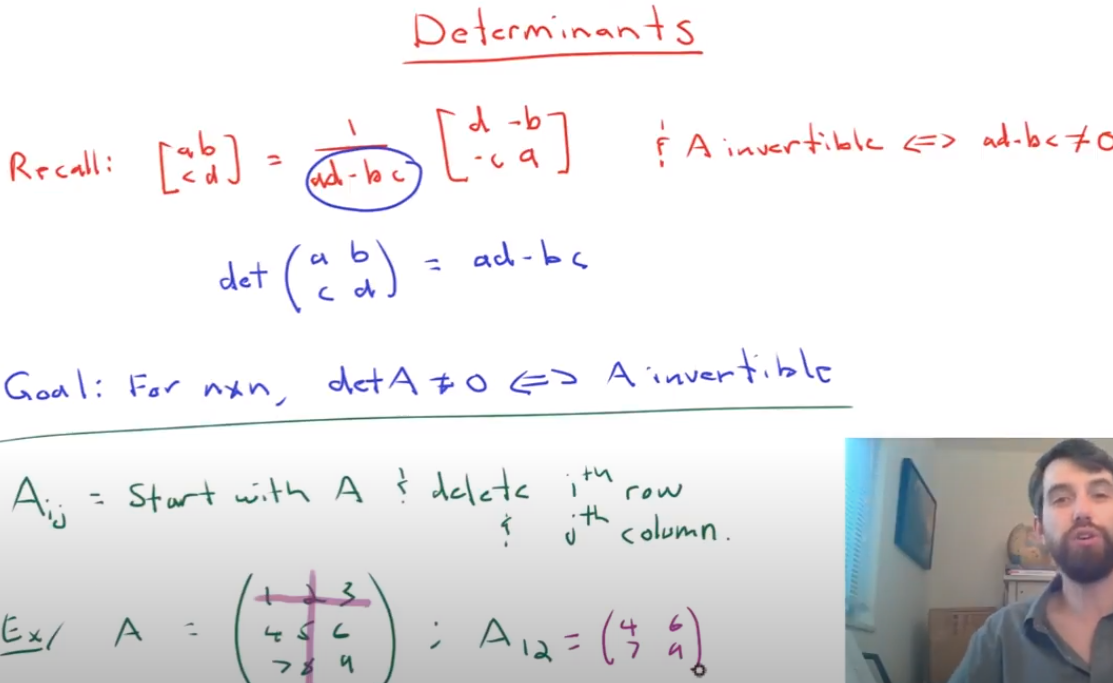 Determinants
Recall: [a b; c d] = 1/(ad-bc) [d -b; -c a] & A invertible <=> ad-bc ≠ 0
det (a b; c d) = ad-bc
Goal: For nxn, det A ≠ 0 <=> A invertible
A_ij = Start with A & delete i^th row
& j^th column.
Ex/ A = (1 2 3; 4 5 6; 7 8 9) ; A_12 = (4 6; 7 9)